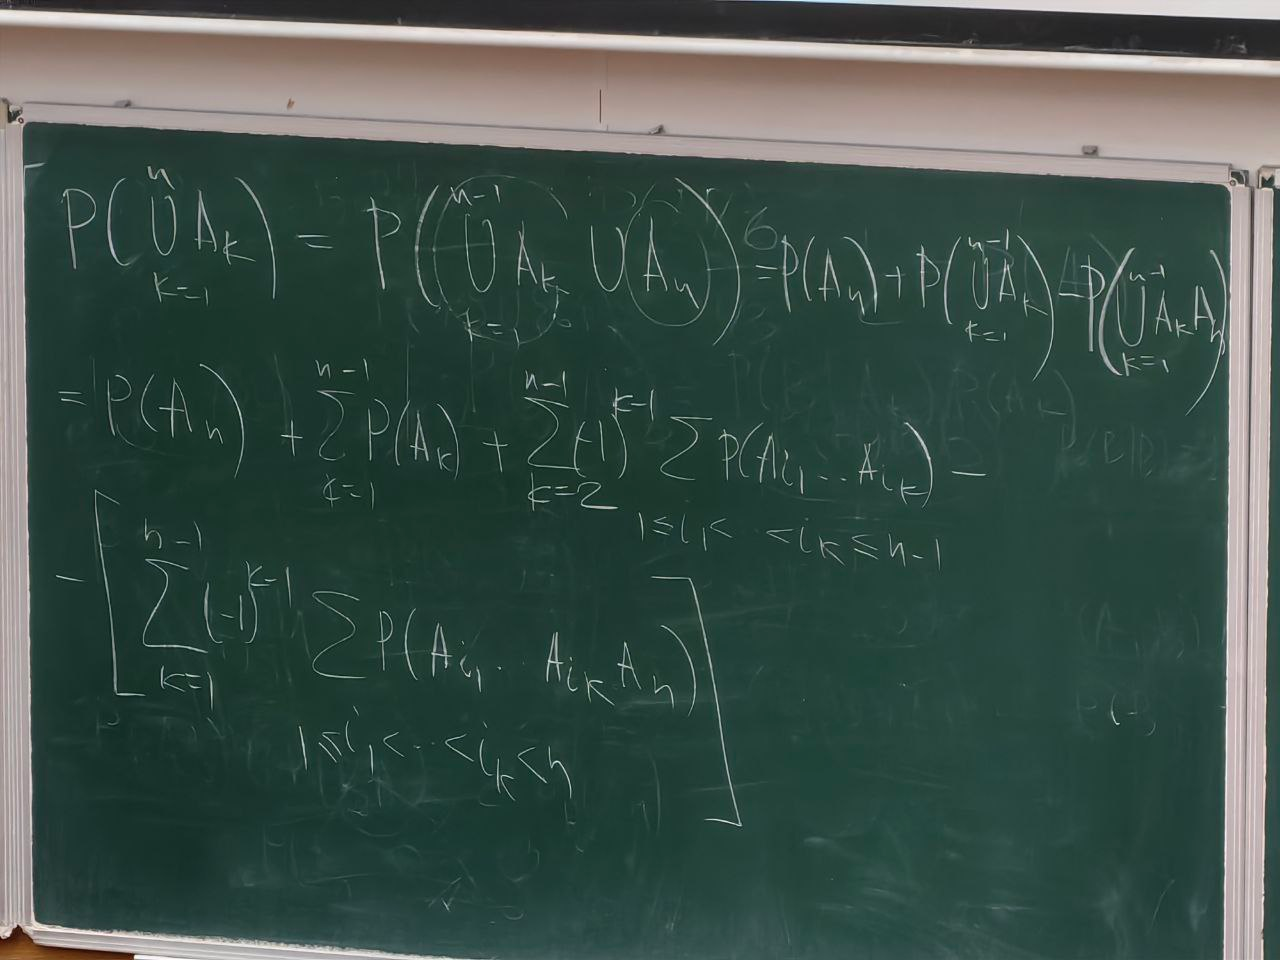 P(⋃_{k=1}^{n} A_k) = P(⋃_{k=1}^{n-1} A_k ∪ (A_n)) = P(A_n) + P(⋃_{k=1}^{n-1} A_k) - P(⋃_{k=1}^{n-1} A_k A_n)
= P(A_n) + ∑_{k=1}^{n-1} P(A_k) + ∑_{k=2}^{n-1} (-1)^{k-1} ∑_{1≤i_1<..<i_k≤n-1} P(A_{i_1}...A_{i_k}) -
- [∑_{k=1}^{n-1} (-1)^{k-1} ∑_{1≤i_1<..<i_k<n} P(A_{i_1}.. A_{i_k} A_n)]